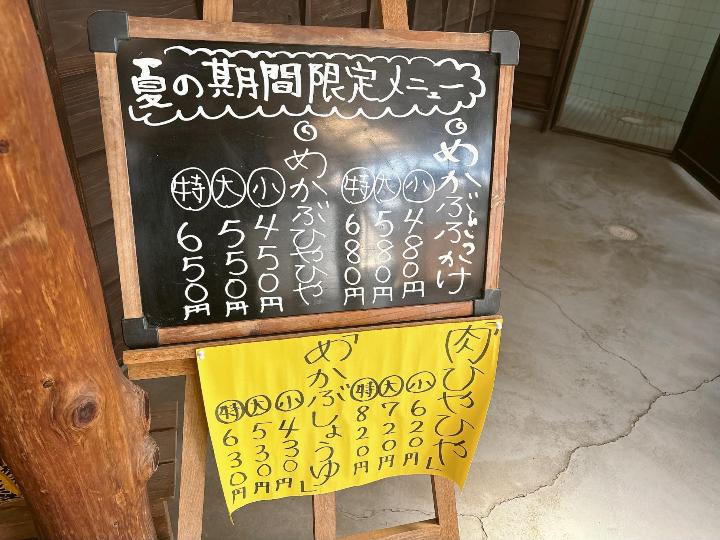 夏の期間限定メニュー
◎めかぶぶっかけ
小480円
大580円
特680円
◎めかぶひやひや
小450円
大550円
特650円
「肉ひやひや」
小620円
大720円
特820円
「めかぶしょうゆ」
小430円
大530円
特630円